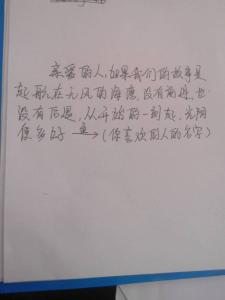 亲爱的人,如果我们的故事是
起航在无风的海底,没有前进,也
没有后退,从开始的一刻起,光阴
停多好 → (你喜欢的人的名字)